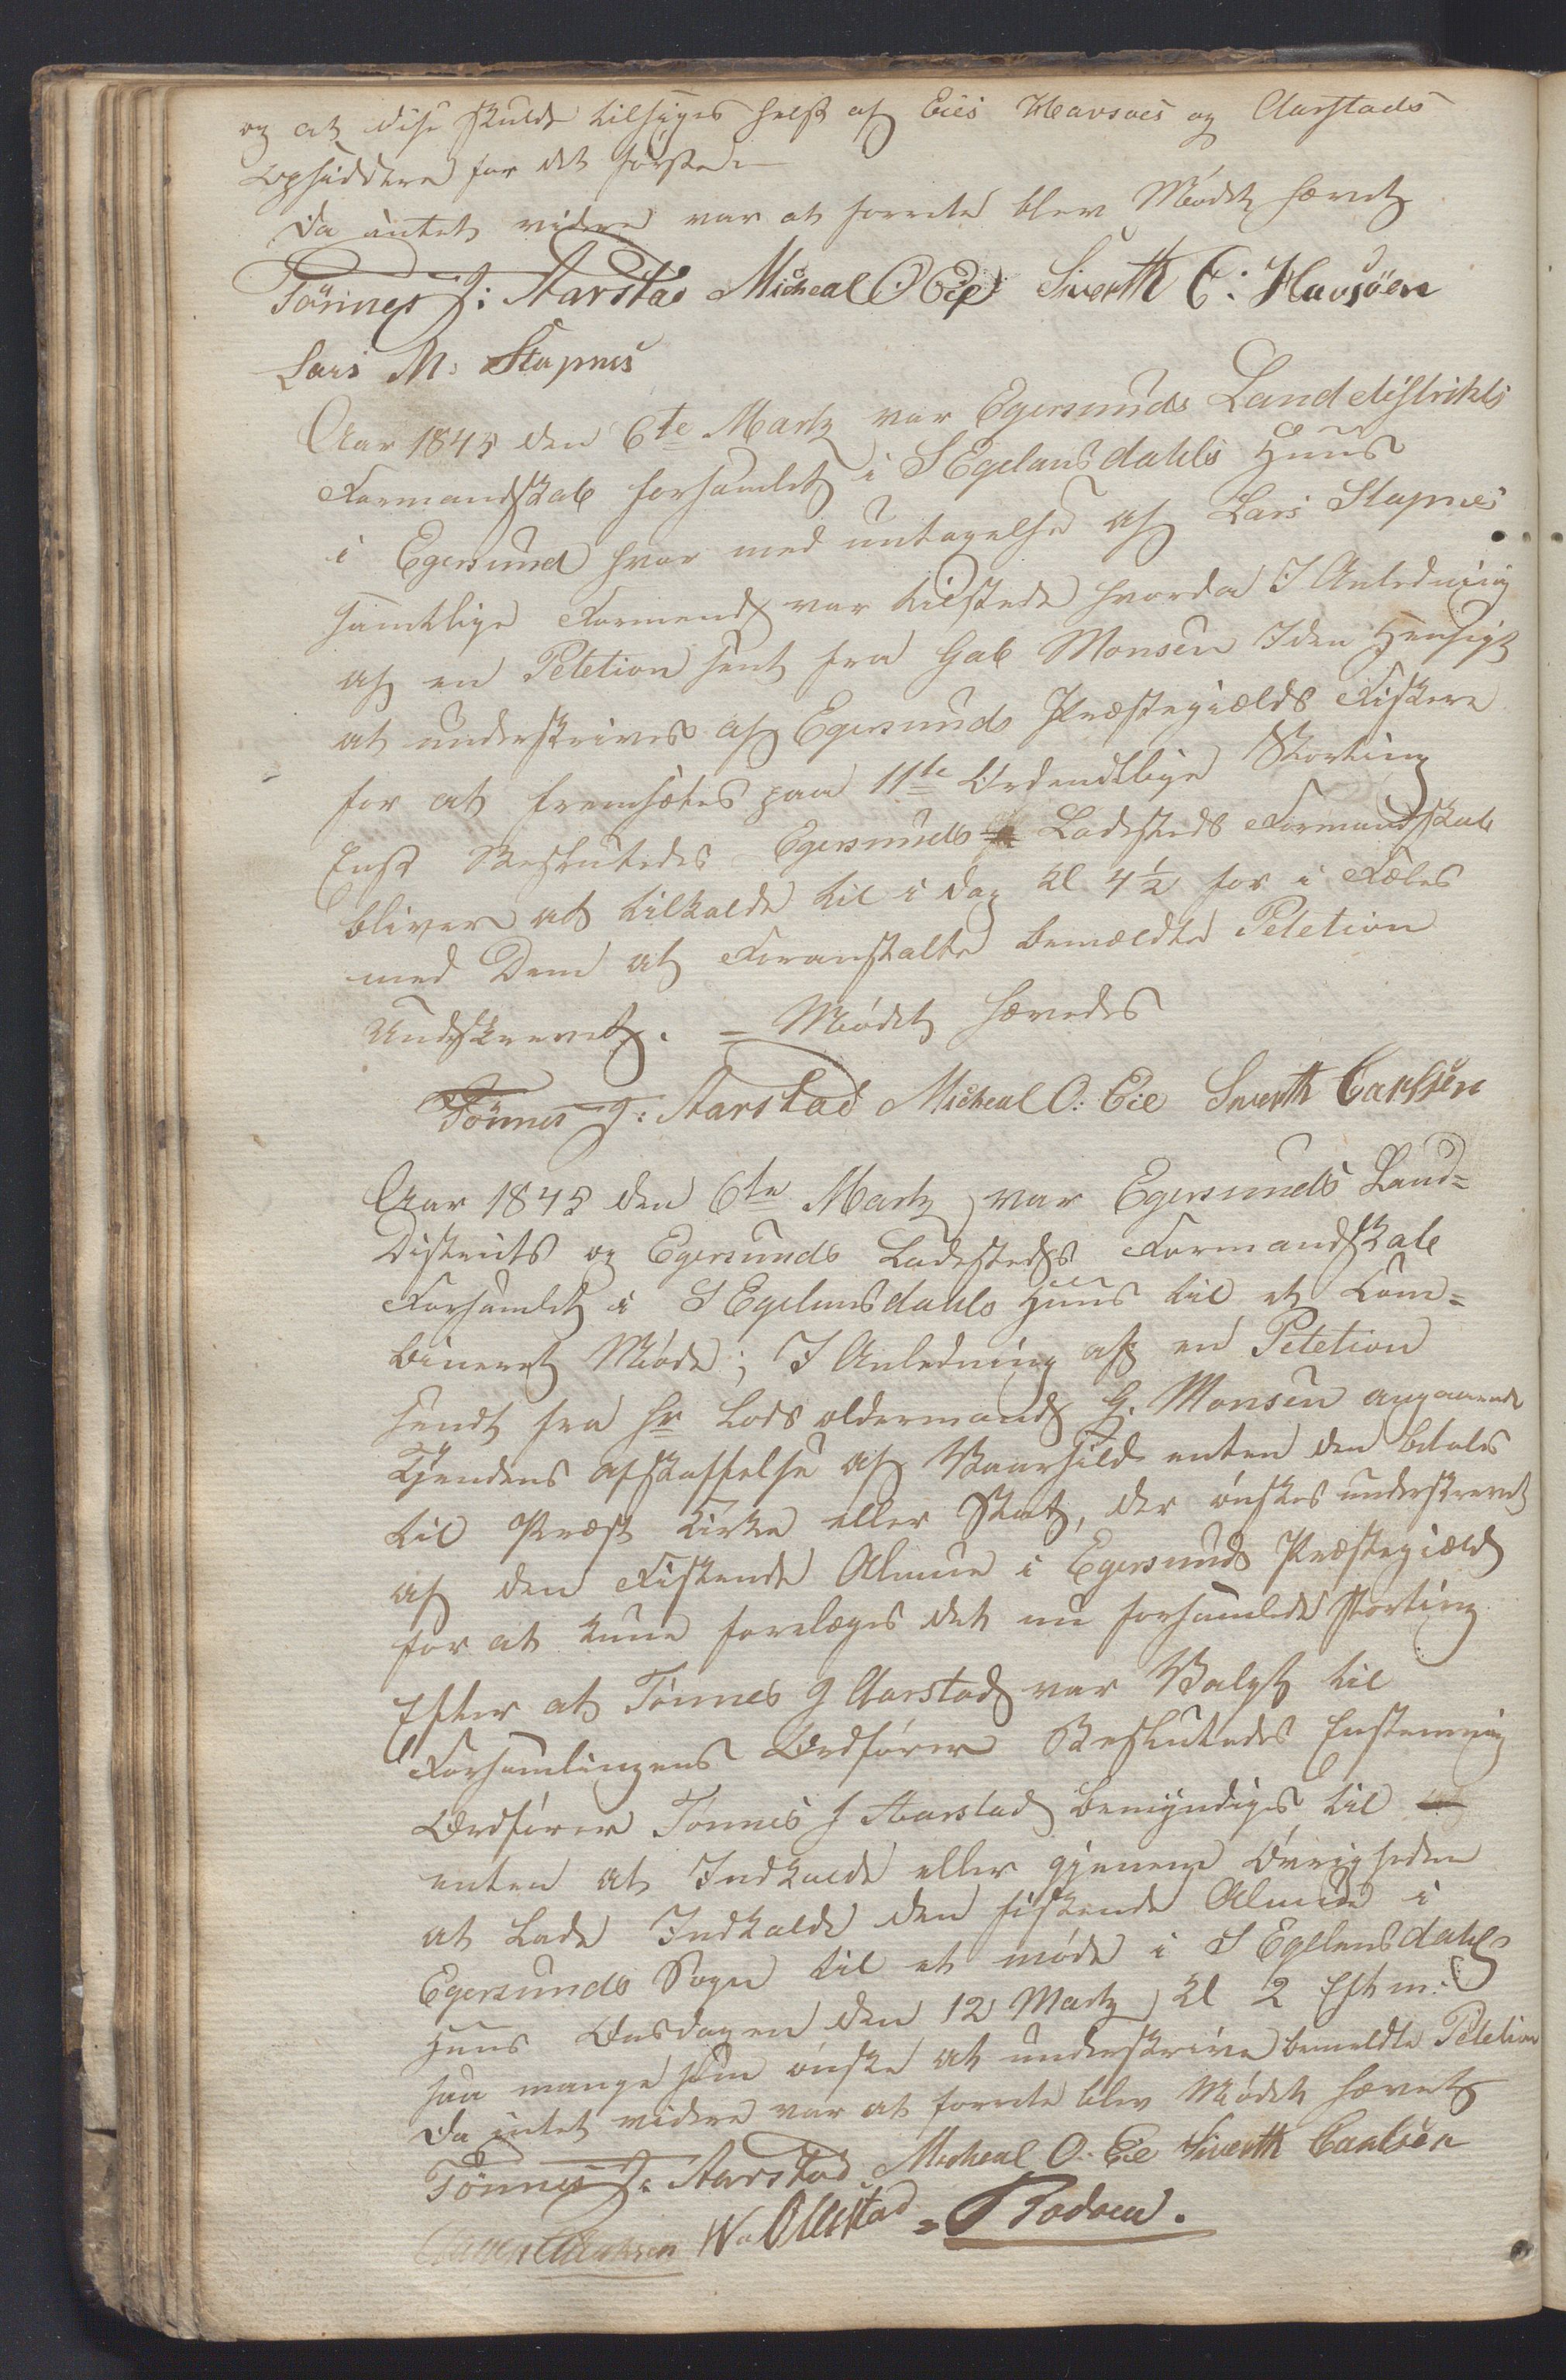 og at disse skulde tilsiges helst af Eies Havsøes og Aarstads
Opsiddere for det første
Da intet videre var at forrete blev Mødet hævet
Tönnes J: Aarstad Micheal O Eie Siverth C: Havsöen
Lars M: Stapnes
Aar 1845 den 6te Martz var Egersunds Landdistrikts
Formandskab forsamlet i S Egelansdahls Huus
i Egersund hvor med untagelse af Lars Stapnes
samtlige Formend var tilstede hvorda I Anledning
af en Petetion sent fra Gab Monsen I den Hensigt
at underskrives af Egersunds Præstegiælds Fiskere
for at fremsætes paa 11te Ordendtlige Storting
Enst Beslutedes Egersunds Ladesteds Formandskab
bliver at tilkalde til i dag Kl 4½ for i Fæles
med Dem at Foranstalte bemældte Petetion
Undskrevet. = Mødet hævedes
Tönnes J: Aarstad Micheal O: Eie Siverth Carlsen
Aar 1845 den 6te Martz var Egersunds Land=
Districts og Egersunds Ladesteds Formandskab
Forsamlet i S Egelansdahls Huus til et Com=
bineret Møde; I Anledning af en Petetion
sendt fra Hr Lods oldermand G. Monsen angaaende
Tiendens afskaffelse af Vaarsild enten den betales
til Præst Kirke eller Stat, der ønskes underskrevet
af den Fiskende Almue i Egersunds Præstegiæld
for at kune forelæges det nu forsamlede Storting
Efter at Tönnes J Aarstad var Valgt til
Forsamlingens Ordfører Beslutedes Enstemmig
Ordfører Tönnes J Aarstad bemyndiges til
enten at Indkalde eller gjenem Øvrigheden
at Lade Indkalde den fiskende Almue i
Egersunds Sogn til et møde i S Egelensdahls
Huus Onsdagen den 12 Martz Kl 2 Efth m:
saa mange som ønske at underskrive bemeldte Petetion
Da intet videre var at forrete blev Mødet hævet
Tönnes J: Aarstad Micheal O: Eie Siverth Carlsen
W. Ollestad =